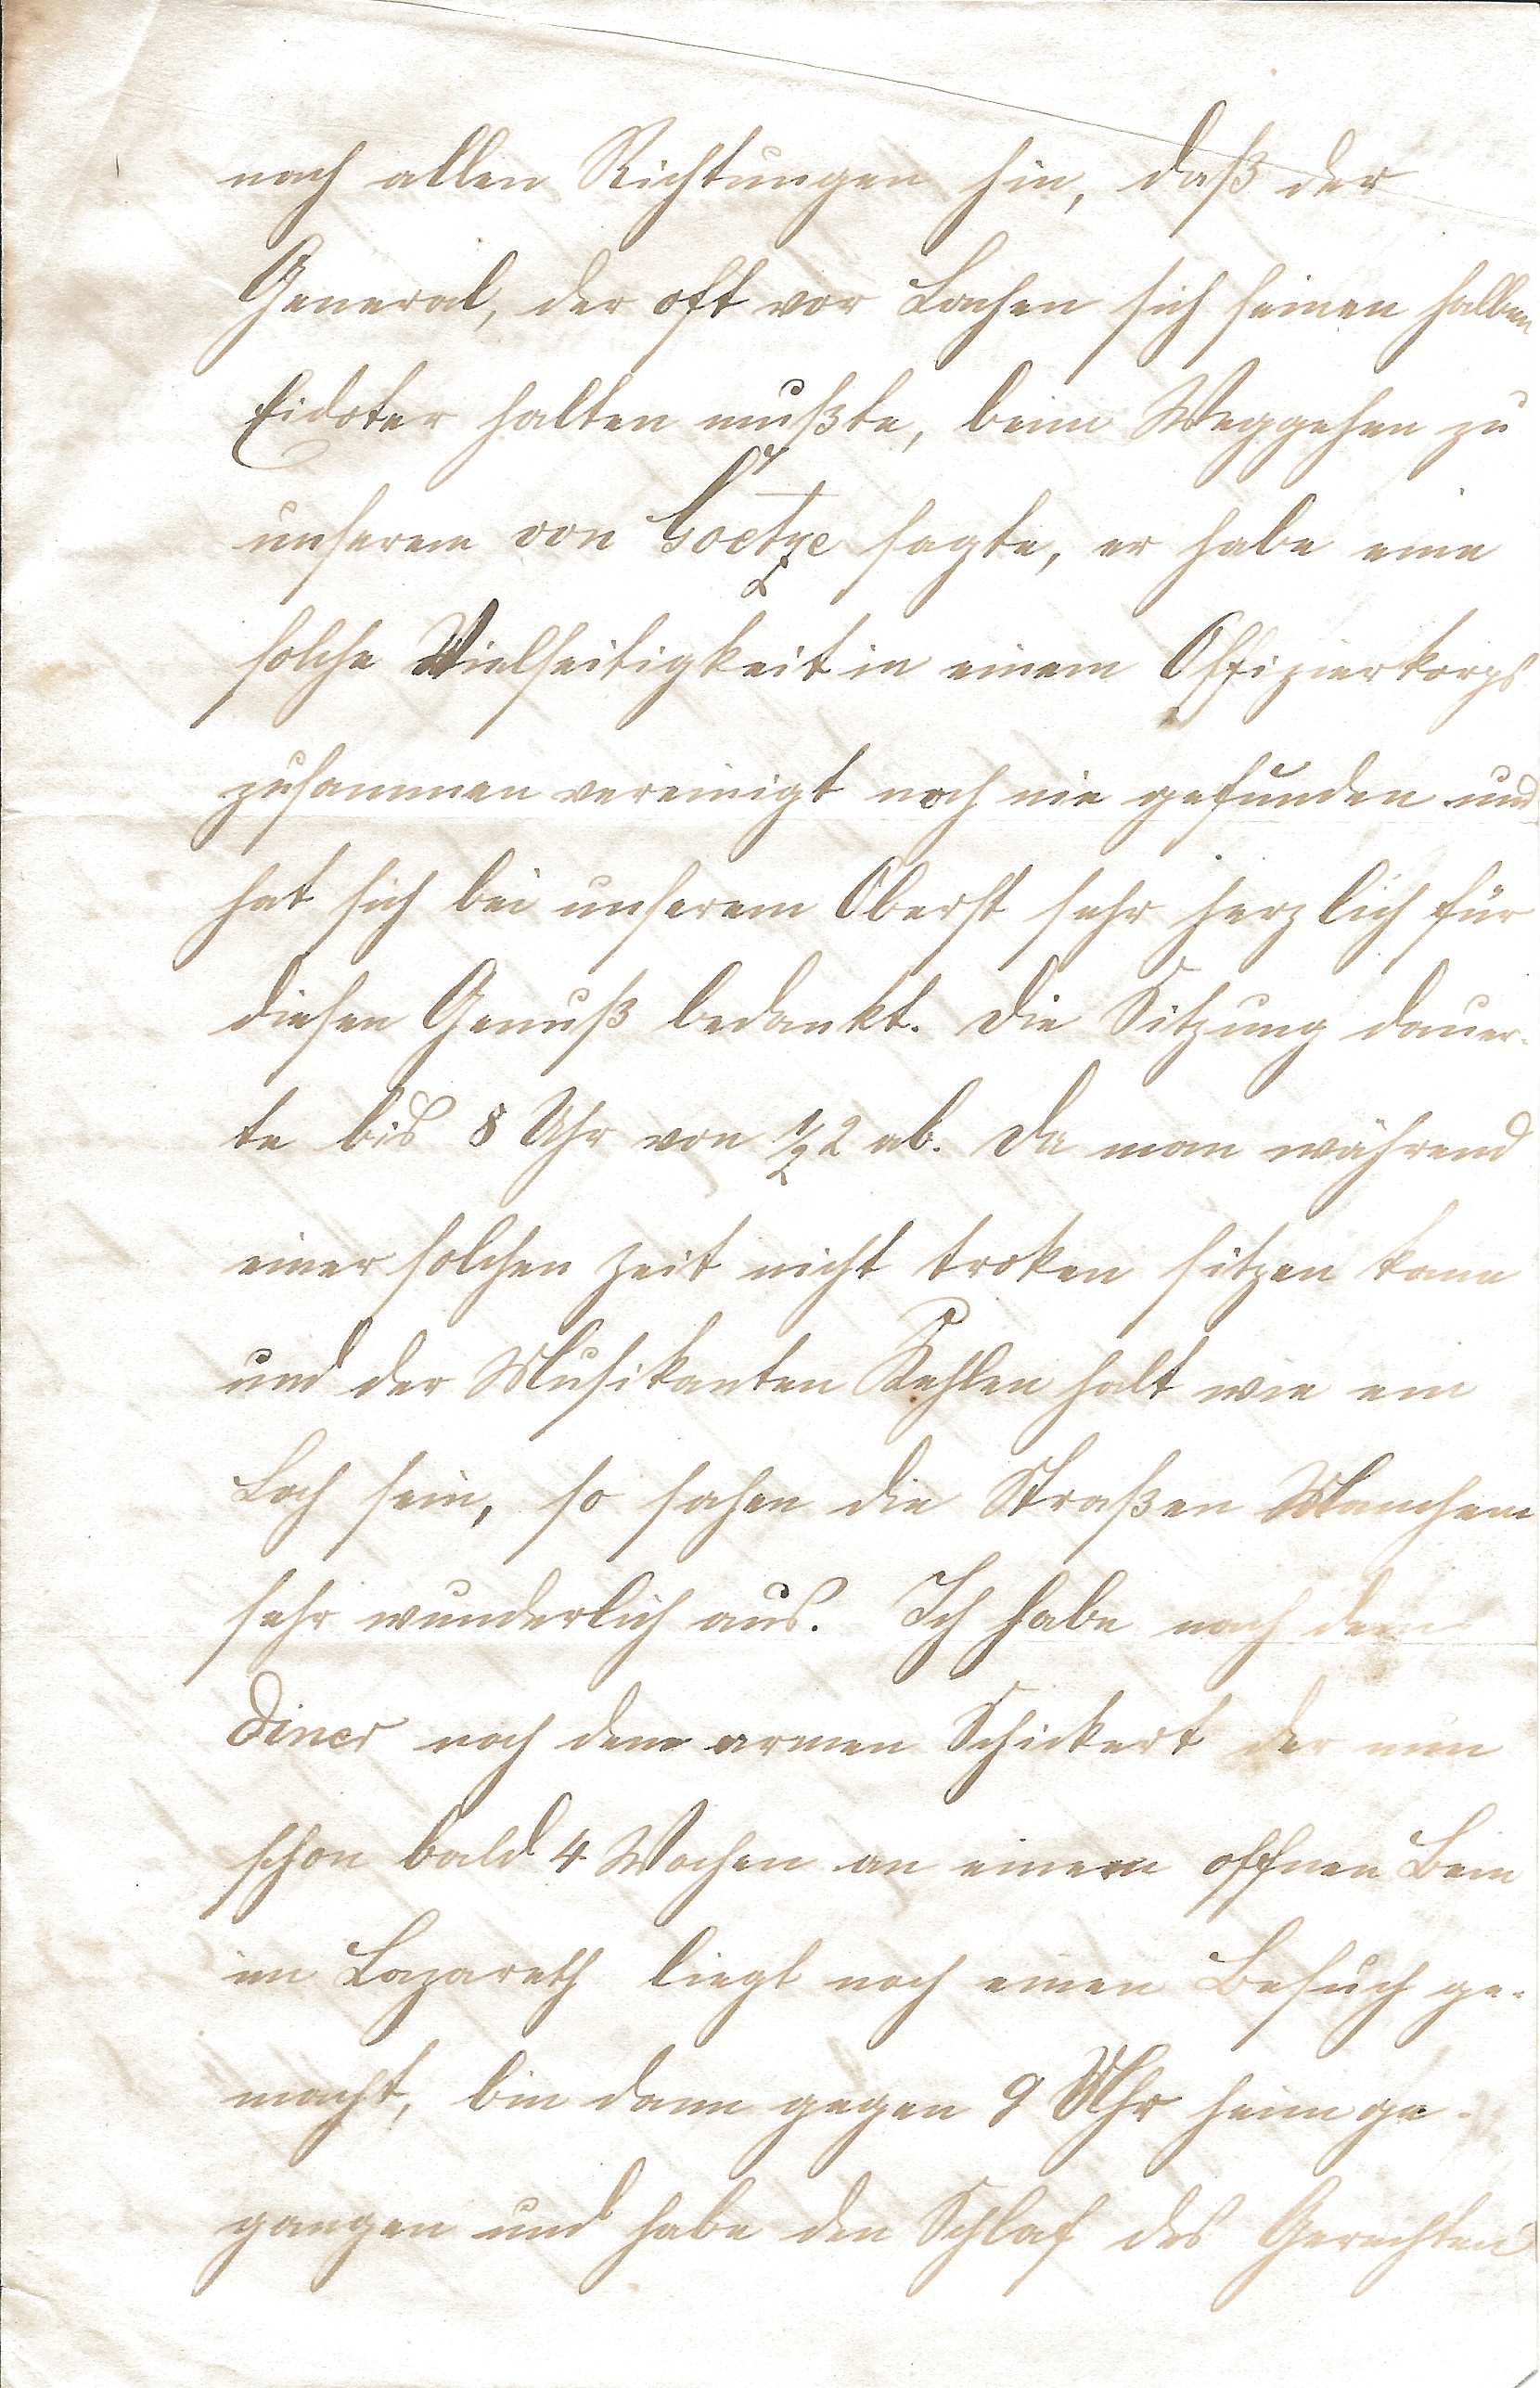 nach allen Richtungen hin, daß der
General, der oft vor Lachen sich seinen halben
Eidoter halten mußte, beim Weggehen zu
unserem von Goetze sagte, er habe eine
solche Vielseitigkeit in einem Offizierkorps
zusammen vereinigt noch nie gefunden und
hat sich bei unserem Oberst sehr herzlich für
diesen Genuß bedankt. Die Sitzung dauer-
te bis 8 Uhr von 1/2 2 ab. Da man während
einer solchen Zeit nicht troken sitzen kann
und der Musikanten Kehlen halt wie ein
Loch sein, so sahen die Straßen Manchem
sehr wunderlich aus. Ich habe nach dem
Diner noch dem armen Schickert der nun
schon bald 4 Wochen an einem offnen Bein
im Lazareth liegt noch einen Besuch ge-
macht, bin dann gegen 9 Uhr heimge-
gangen und habe den Schlaf des Gerechten